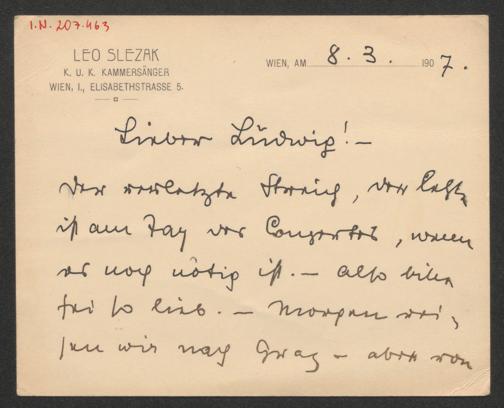 I.N. 207.463
LEO SLEZAK
K. U. K. KAMMERSÄNGER
WIEN, I., ELISABETHSTRASSE 5.
WIEN, AM 8. 3. 1907.
Lieber Ludwig! –
Der vorletzte Streich, der letzte
ist am Tag des Conzertes, wenn
es noch nötig ist. – Also bitte
sei so lieb. – Morgen rei-
sen wir nach Graz – aber von